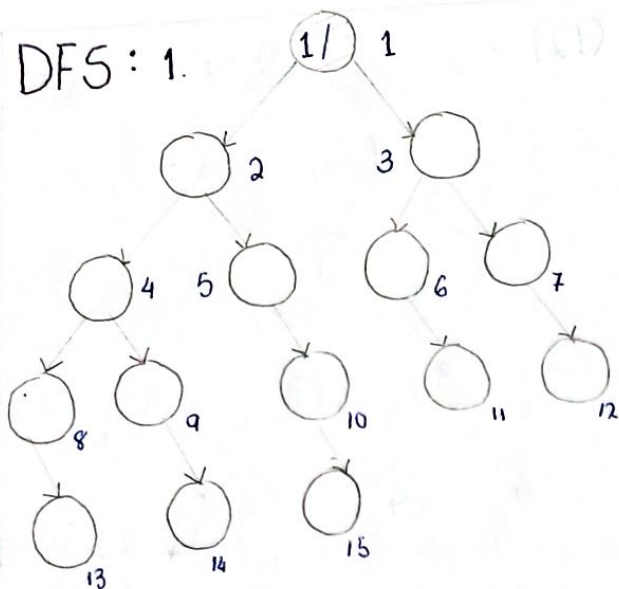 DFS: 1.
1/ 1
2 3
4 5 6 7
8 9 10 11 12
13 14 15